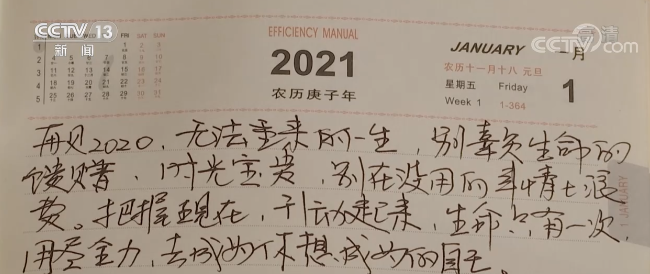 CCTV 13
新闻
高清
CCTV.com
EFFICIENCY MANUAL
2021
农历庚子年
FRI SAT SUN
JANUARY 一月
农历十一月十八 元旦
星期五 Friday
Week 1 1-364
1
1 JANUARY
再见2020，无法重来的一生，别辜负生命的
馈赠，时光宝贵，别在没用的事情上浪
费。把握现在，行动起来，生命只有一次，
用尽全力，去成为你想成为的自己。